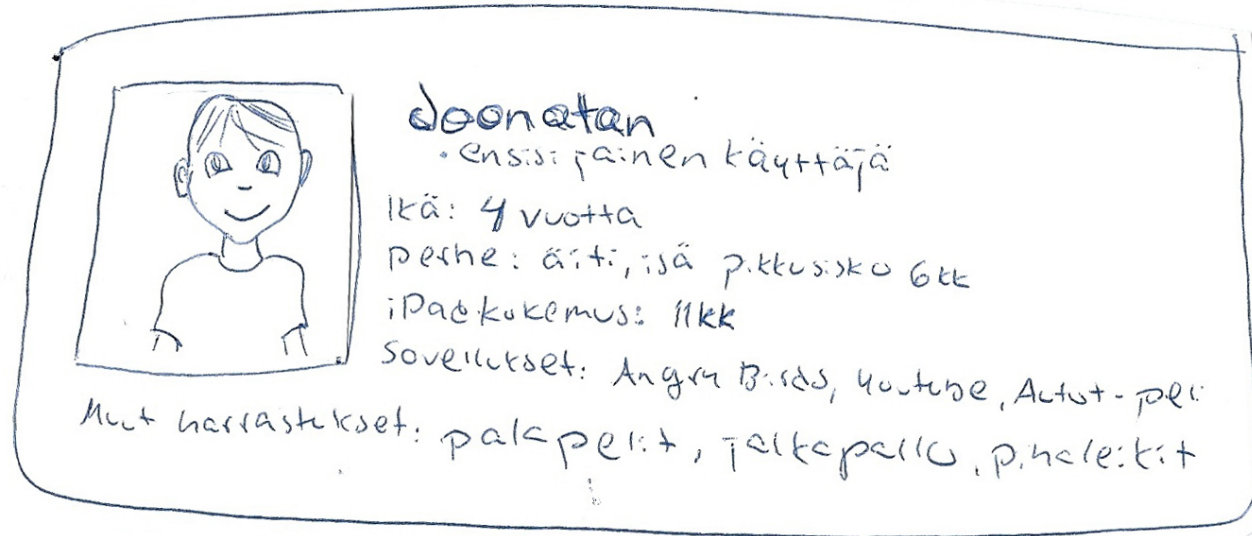 Joonatan
• ensisijainen käyttäjä
Ikä: 4 vuotta
perhe: äiti, isä pikkusisko 6kk
iPad kokemus: 11kk
Sovellukset: Angry Birds, Youtube, Autot-peli
Muut harrastukset: palapelit, jalkapallo, pihaleikit